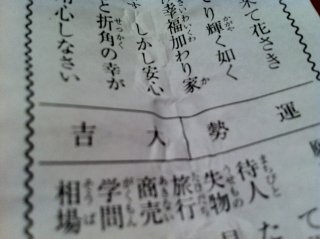 来て花さき
り輝く如く
幸福加わり家
しかし安心
と折角の幸が
心しなさい
運勢
大吉
待人
失物
旅行
商売
学問
相場